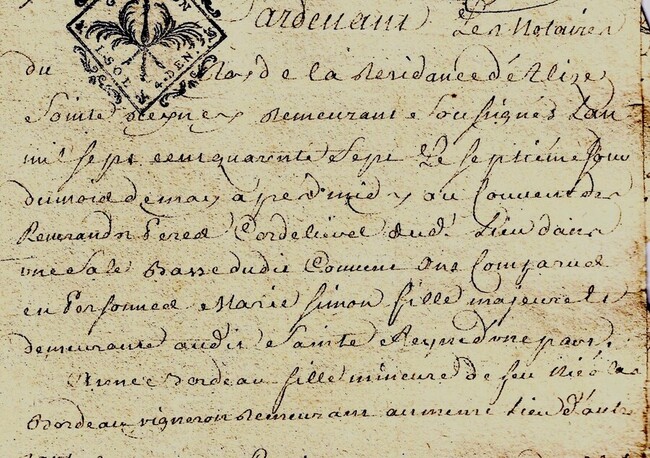 G ON
1. SOL 4. DEN
Pardevant Les Notaires
du de la Residance d'Alise
Sainte Reyne y Demeurant Soussignés Lan
mil sept cent quarente Sept Le Septième Jour
du mois de may aprés midy au Couvent des
Reverands Peres Cordeliers dud.t Lieu dans
une Sale Basse dudit Couvent Ont Comparues
en Personnes Marie Simon fille majeure
demeurante audit Sainte Reyne d'une part,
Anne Bordeau fille mineure de feu Nicolas
Bordeau vigneron Demeurant au meme Lieu d'autre